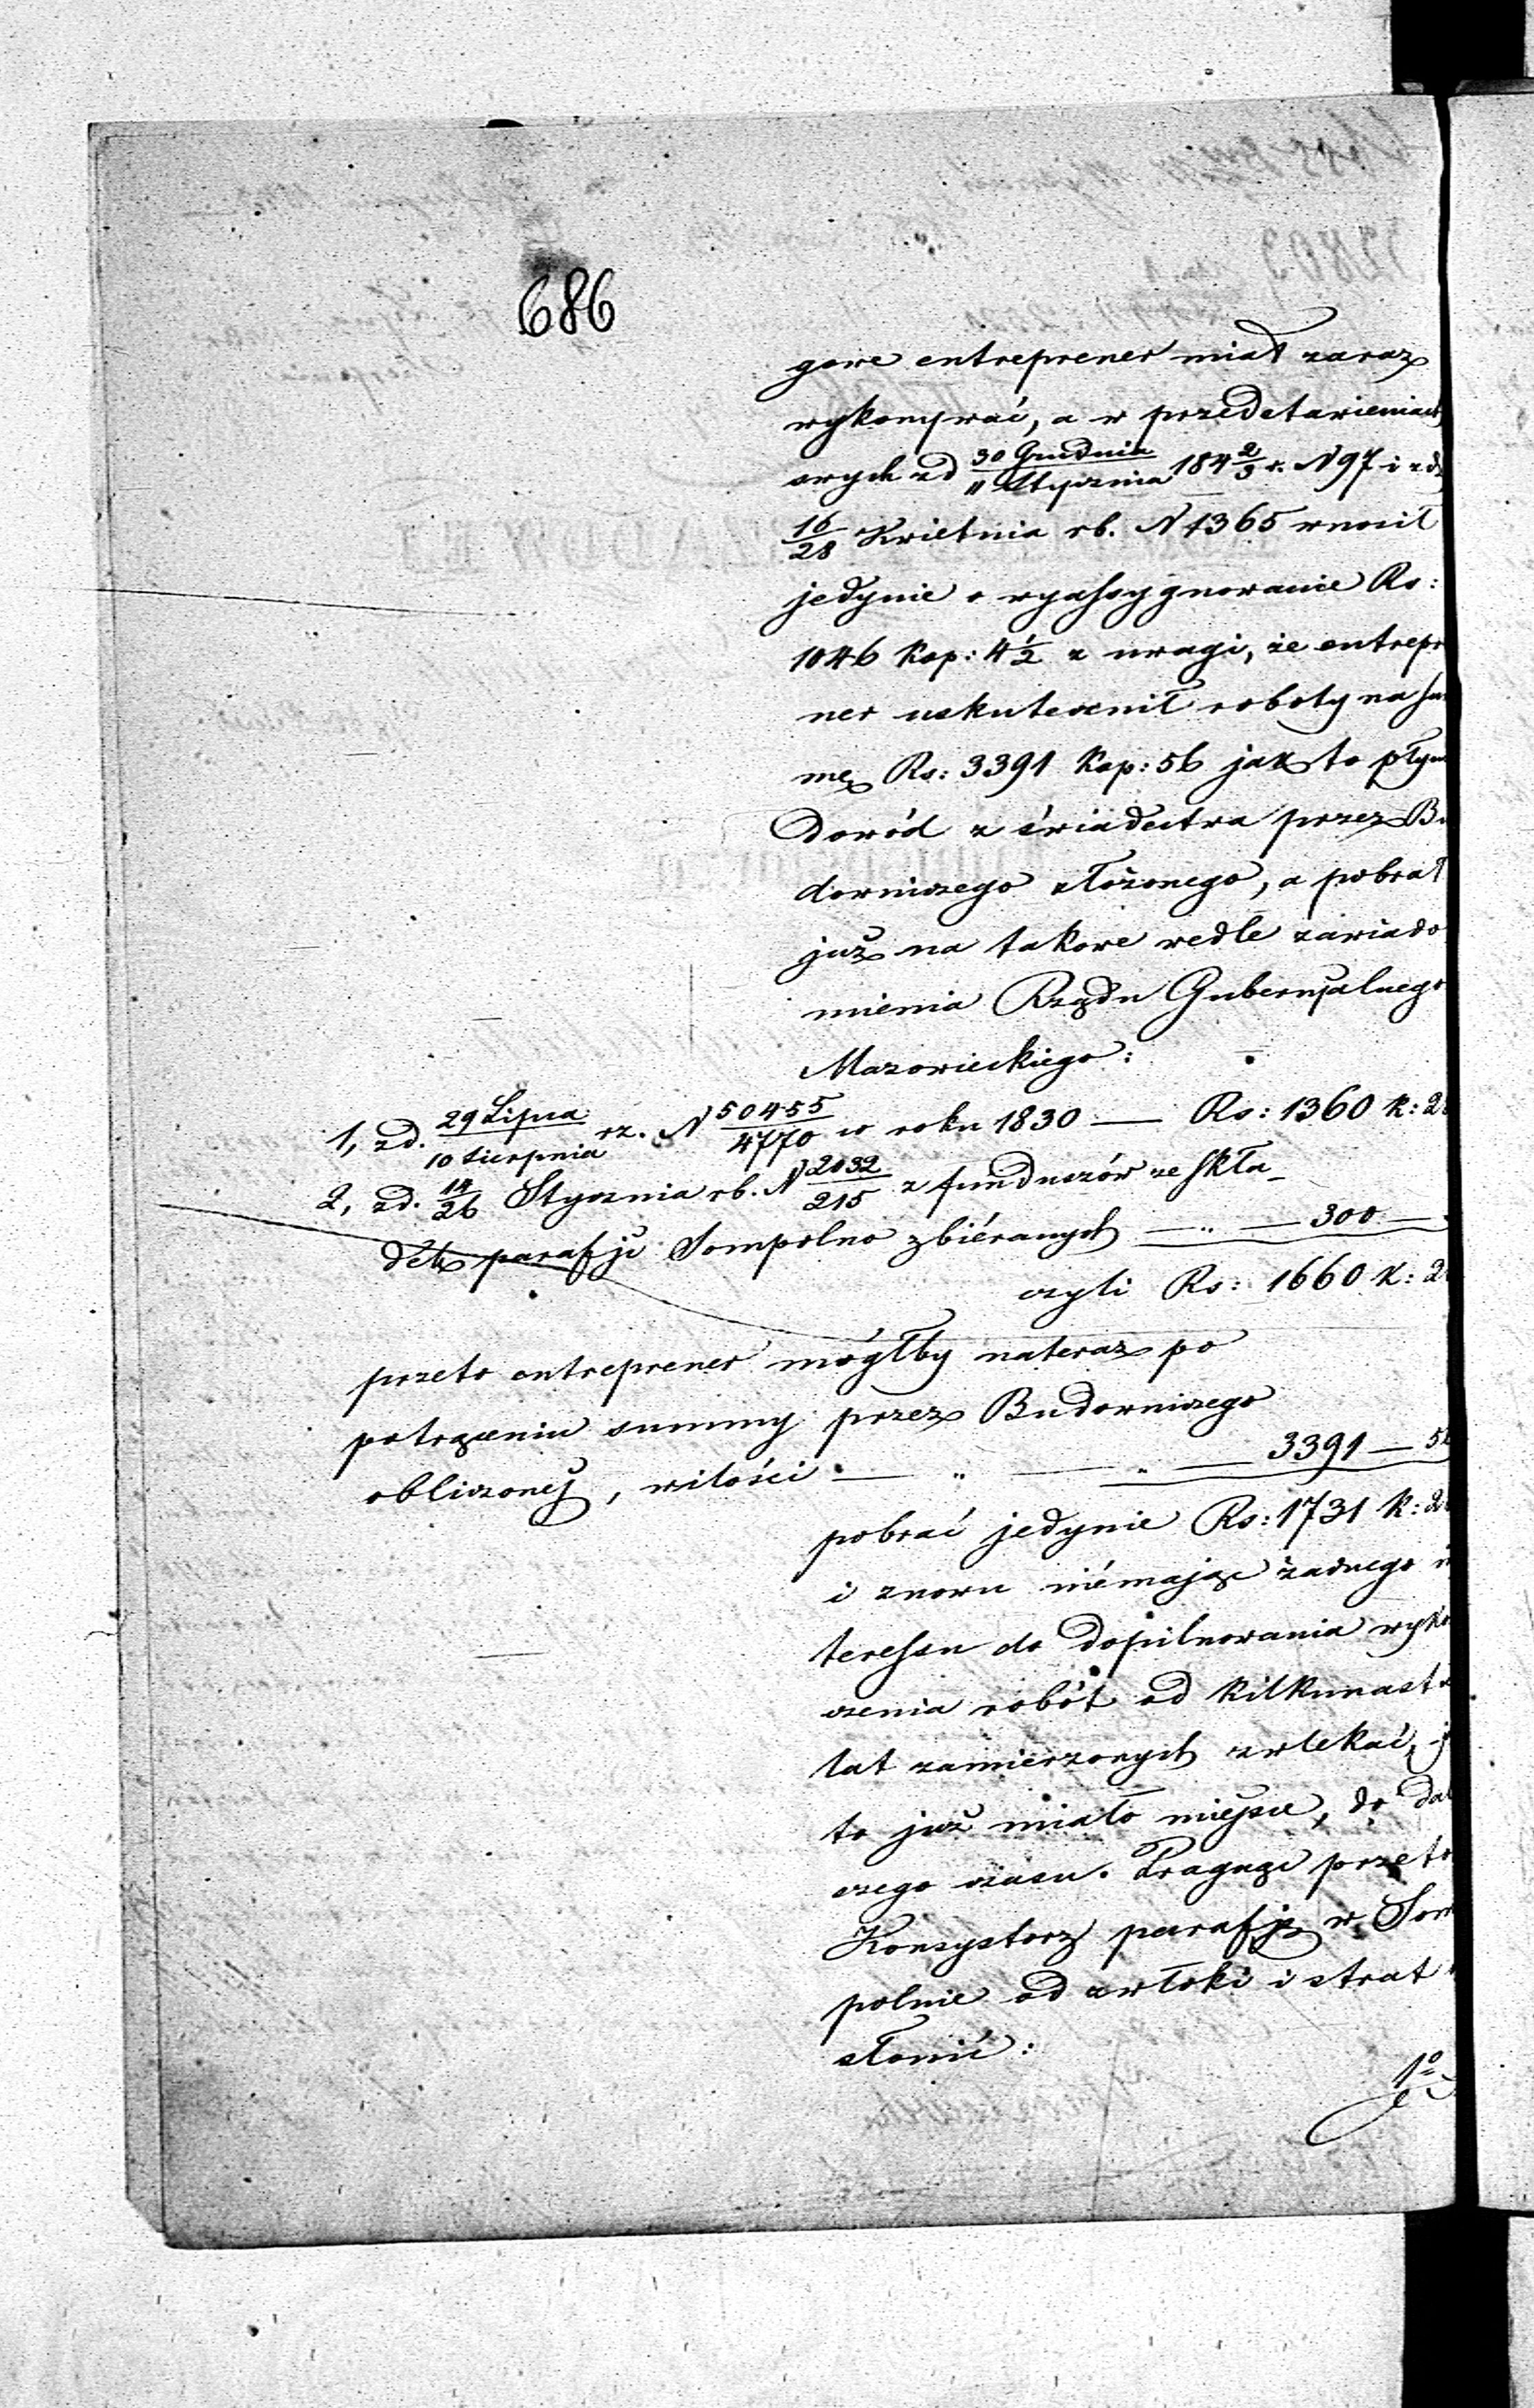 686
gowe entreprener miał zaraz
wykonywać, a w przedstawieniach
swych z d 30 Grudnia/11 Stycznia 184 2/3 r. N 97 i z d
16/28 Kwietnia rb. N 1365 wnosił
jedynie o wyassygnowanie Rs:
1046 Kop: 4½ z uwagi, że entrepr
ner uskutecznił roboty na su
mę Rs: 3391 Kop: 56 jak to płyn
dowód z świadectwa przez Bu
downiczego złożonego, a pobrał
już na takowe wedle zawiado
mienia Rządu Gubernjalnego
Mazowieckiego:
1, z d. 29 Lipca/10 Sierpnia rz. N 50455/4770 w roku 1830 — Rs: 1360 k: 28
2, z d. 14/26 Stycznia rb. N 2032/215 z funduszów ze skła_
dek parafji Sompolno zbiéranych — „ — 300 —
czyli Rs: 1660 K: 28
przeto entreprener mógłby nateraz po
potrąceniu summy przez Budowniczego
obliczonej, w ilości — „ — „ — 3391 — 56
pobrać jedynie Rs: 1731 k: 28
i znowu niémając żadnego in
teressu do dopilnowania wykoń
czenia robót od kilkunastu
lat zamierzonych zwlekać, j
to już miało miejsce, do dal
szego czasu. Pragnąc przeto
Konsystorz parafję w Som
polnie od zwłoki i strat
słonić:
1º